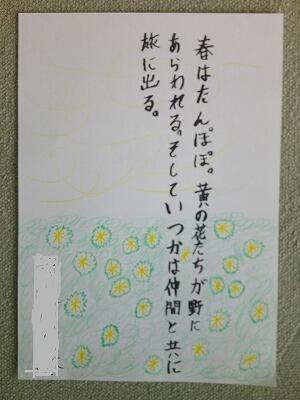 春はたんぽぽ。黄の花たちが野に
あらわれる。そしていつかは仲間と共に
旅に出る。